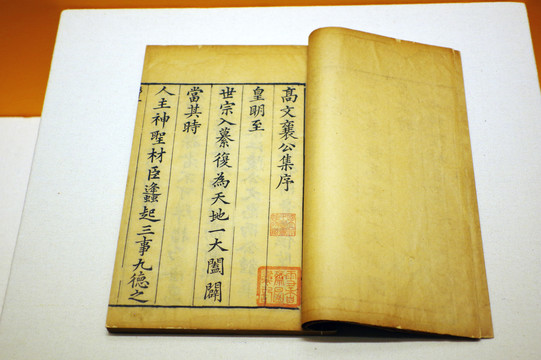 高文襄公集序
皇明至
世宗入纂復為天地一大闔闢
當其時
人主神聖材臣蠭起三事九德之